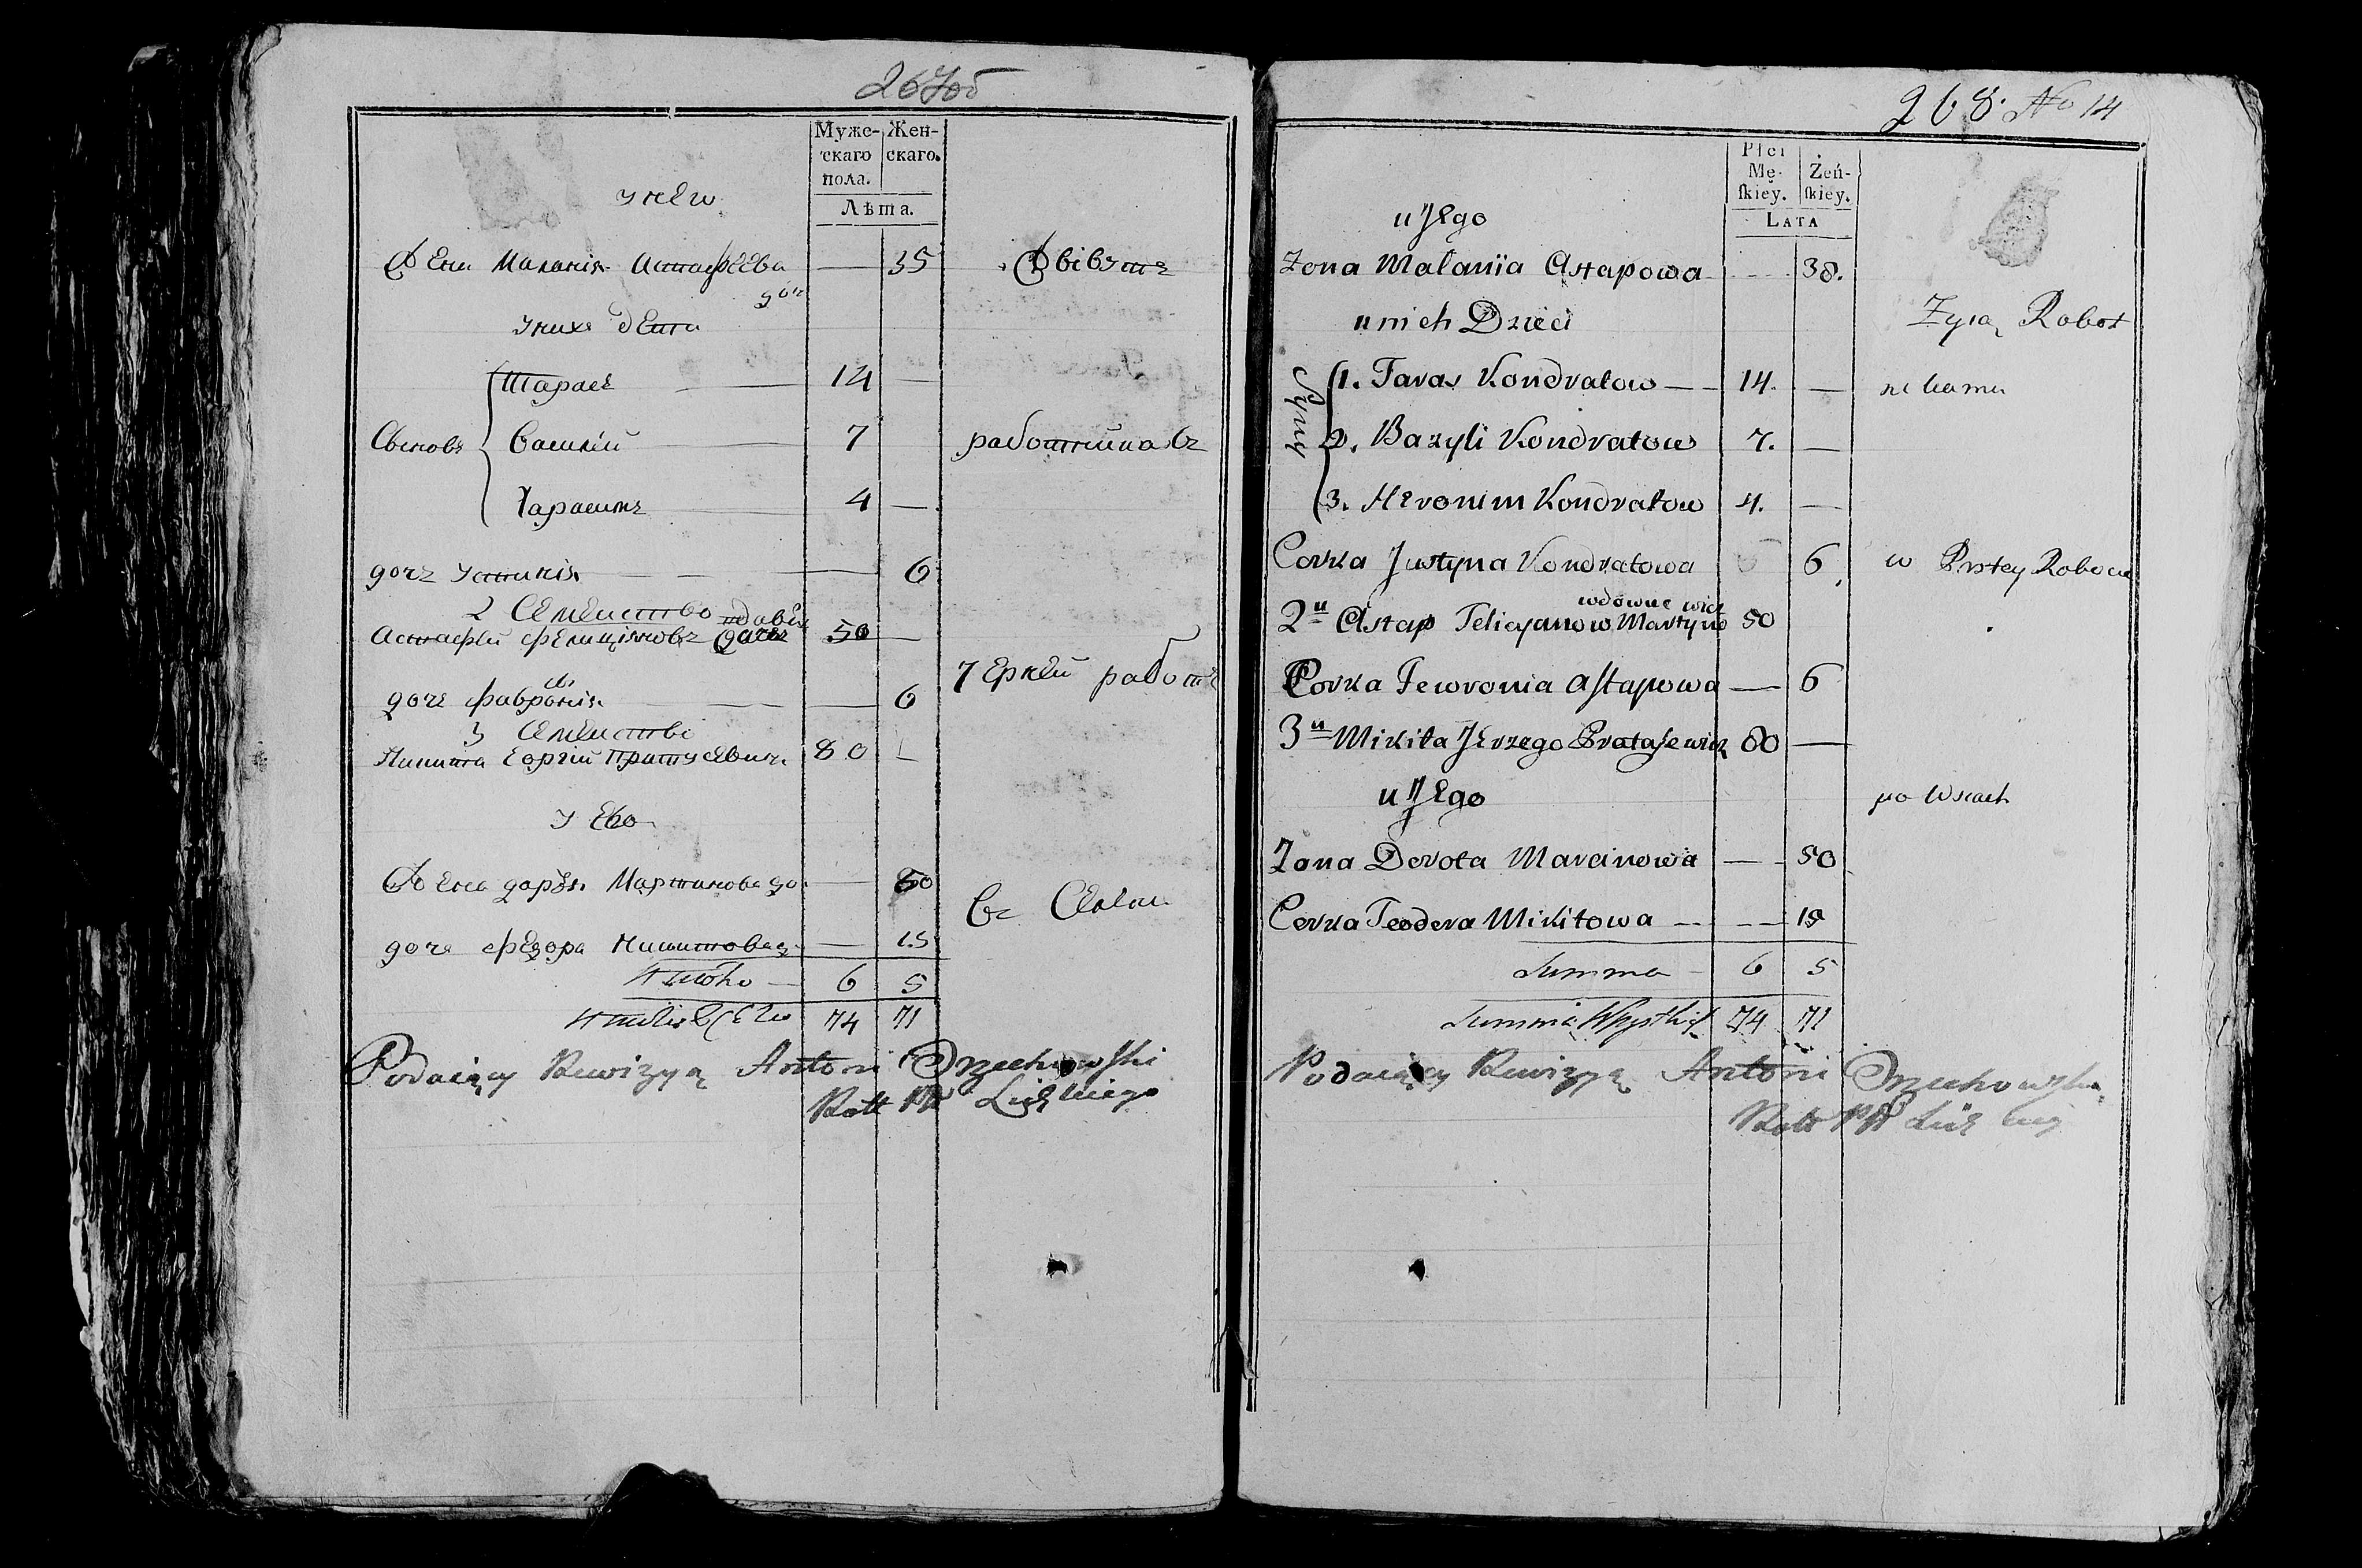 267об
Муже-
скаго
пола.
Жен-
скаго.
Лѣта.
у него
Жена Маланія Астафеева
доч
35
Живутъ
у нихъ дети
Тарасъ 14 —
Сыновъ Василій 7
работников
Тарасимъ 4 —
дочь Устинія — 6
2 Семейство
Астафей Фелиціяновъ 50 —
дочь Фавронія — 6
черней работ
3 Семейство
Никита Еоргій Притусевичъ 80 —
у Ево
Жена дарья Мартинова до — 50
въ Селах
доче Федора Никитова д — 15
Итого — 6 5
74 71
Podaiący Rewizyą Antoni Orzechowski
Rott PW
268. No 14
Płci
Mę-
skiey.
Żeń-
skiey.
LATA
u Jego
Zona Malaniia Astapowa 38.
u nich Dzieci
Zyią Robot
Syny
1. Taras Kondratow — 14. —
nikami
2. Bazyli Kondratow 7. —
3. Heronim Kondratow 4. —
Corka Justyna Kondratowa 6
w Prstey Robocie
wdowne wicz
2u Astap Felicyanow Martyno 50
Corka Fewronia Astapowa — 6
3u Mikita Jerzego Pratasewicz 80 —
u Jego
po Wsiach
Zona Dorota Marcinowa — 50
Corka Teodora Mikitowa — 15
Summa — 6 5
Summa Wszystkich 74 71
Podaiący Rewizyą Antoni Orzechowski
Rott PW